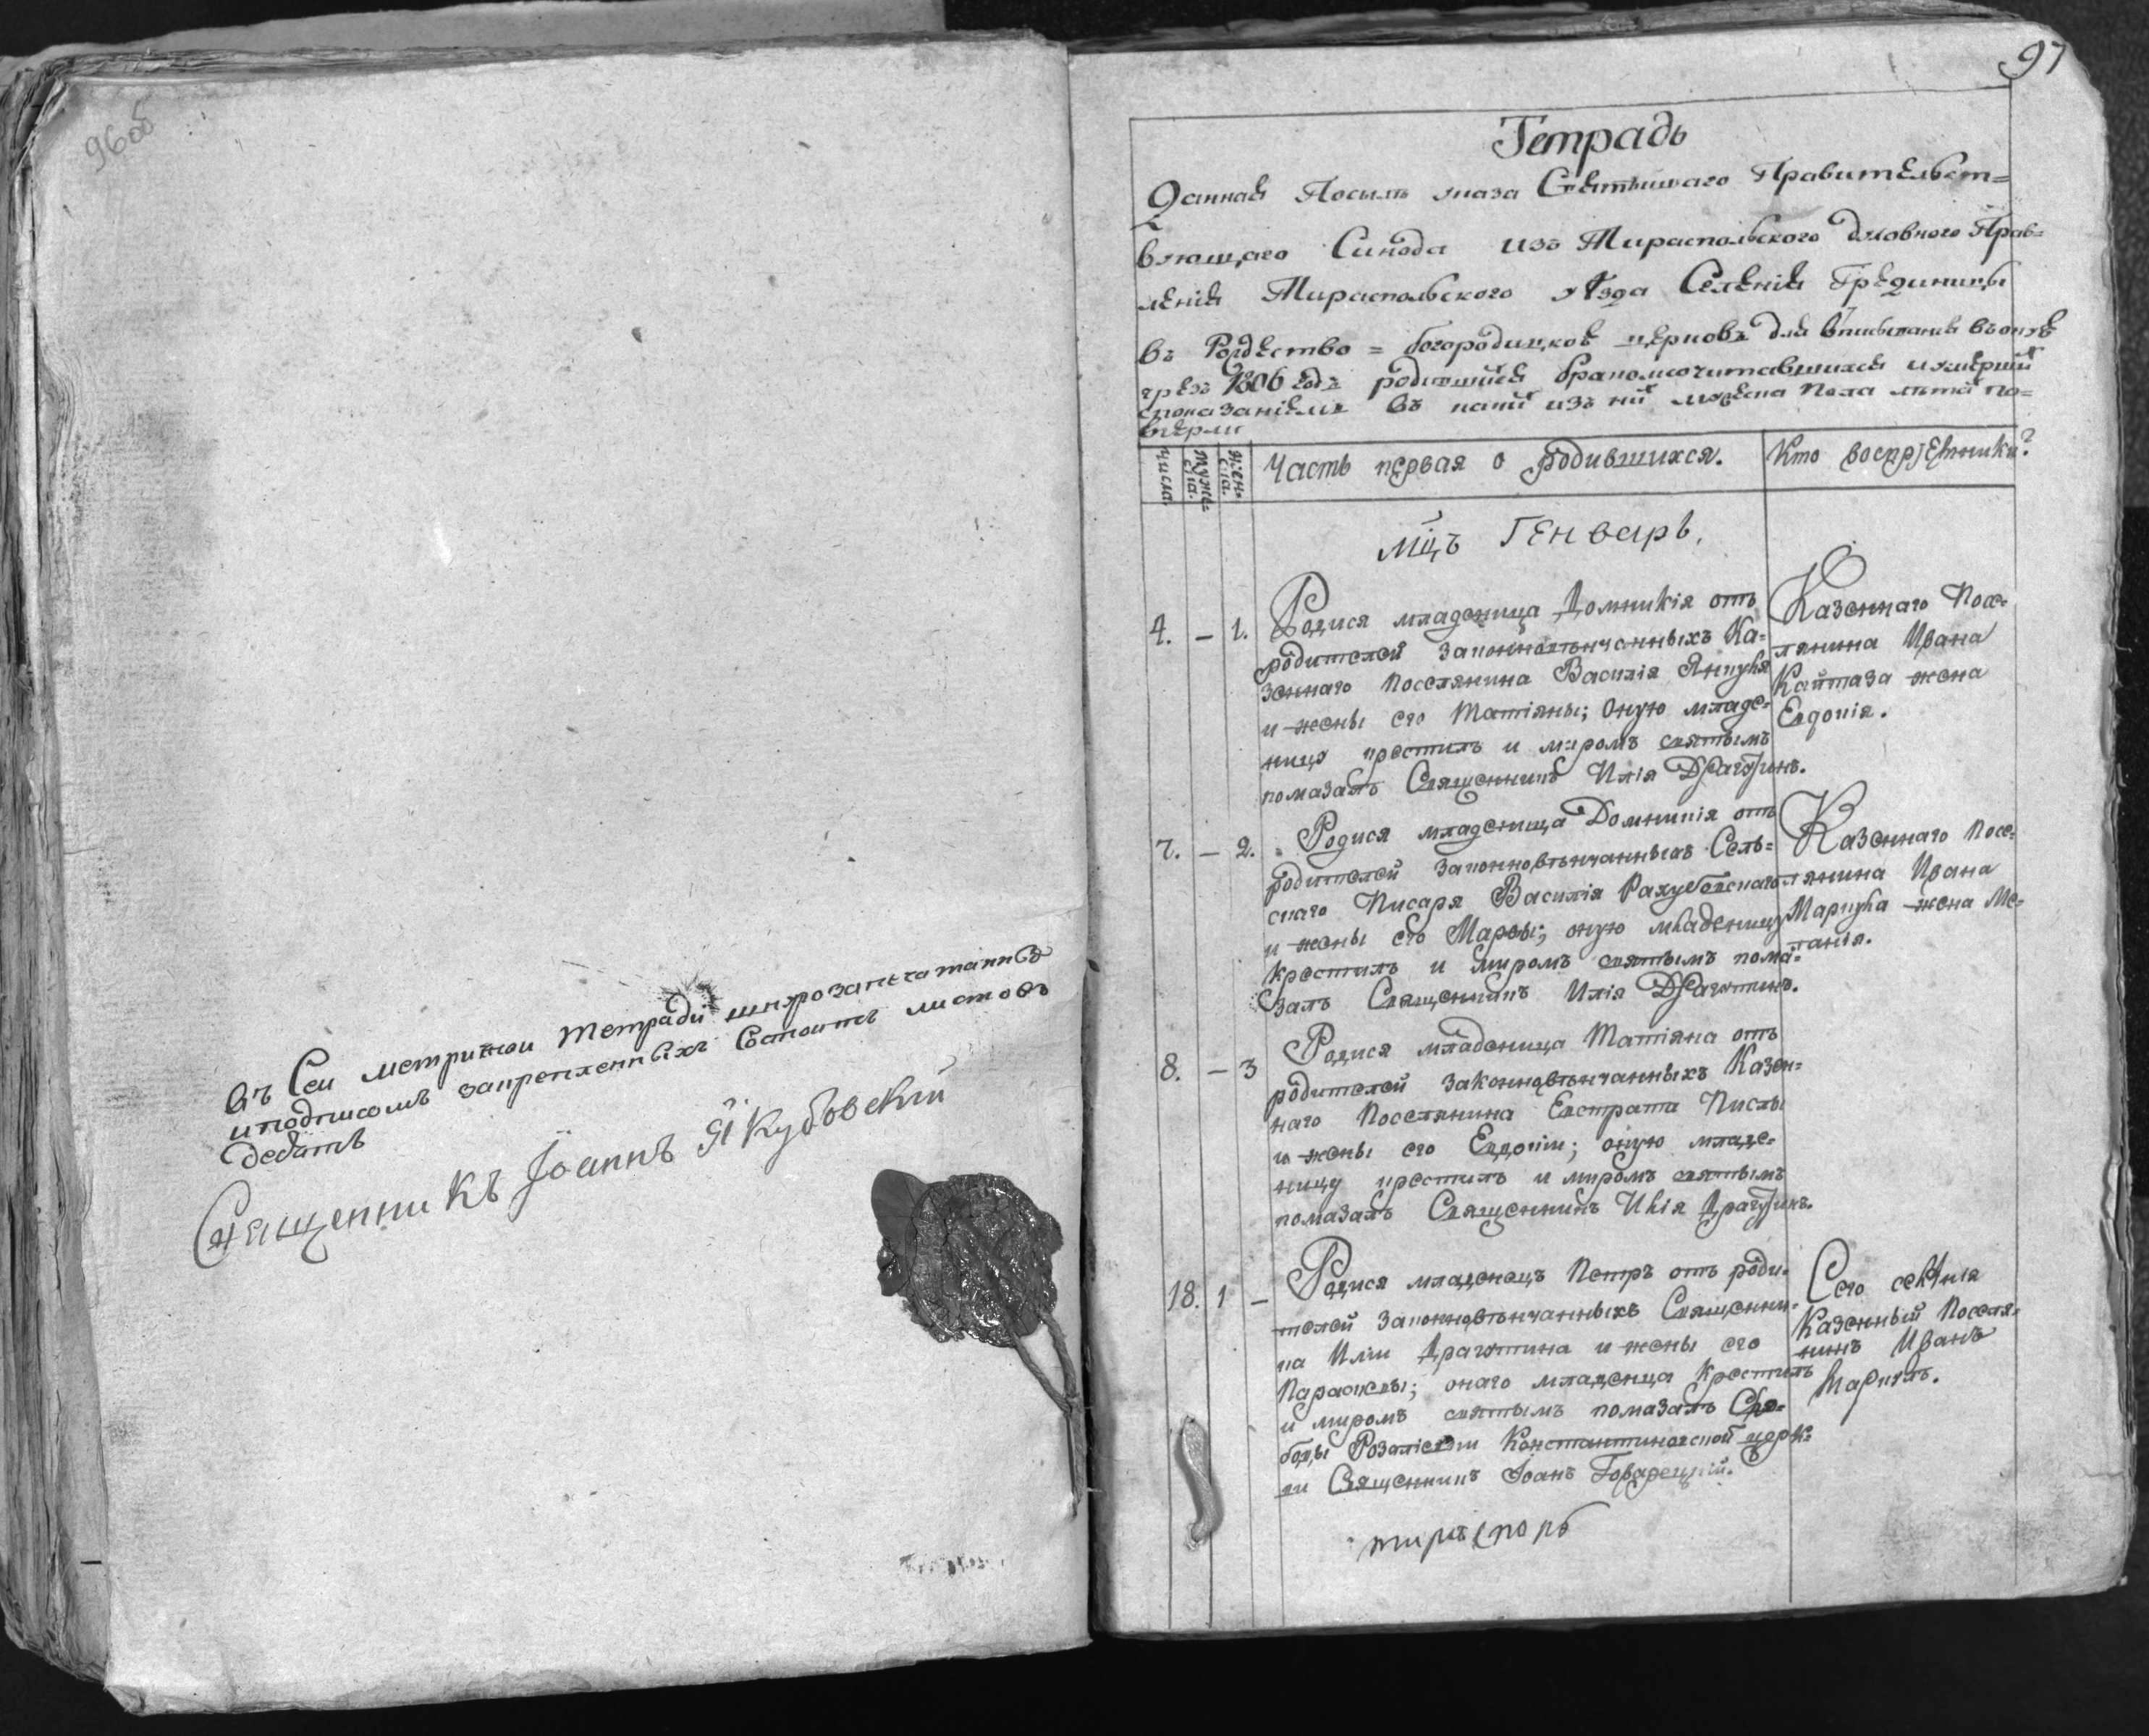 96об
въ Сеи метричнои тетради шнурозапечатанныхъ
и подписомъ закрепленныхъ Состоитъ листовъ
девять
Священникъ Іоаннъ Якубовскій
97
Тетрадь
Данная Посылѣ указа Святѣйшаго Правительст=
вующаго Синода изъ Тираспольского духовного Прав=
ленія Тираспольского уѣзда Селенія Грединицы
въ Рождество = богородицкою церковъ для вписыванія въ оную
чрезъ 1806 годъ родившихся бракомсочитавшихся и умершихъ
споказаніемъ въ какій изъ ний мужеска пола лѣта по=
мерли
числа.
мужеска.
женска.
Часть первая о родившихся.
Кто воспріемники?
Мцъ Генварь.
4. – 1.
Родися младеница Домникія отъ
родителей законновѣнчанныхъ Ка=
зеннаго Поселянина Василія Янчука
и жены его Татіяны; Оную младе=
ницу крестилъ и миромъ святымъ
помазалъ Священникъ Илія Драгутинъ.
Казеннаго Посе=
лянина Ивана
Кайтаза жена
Евдокія.
7. – 2.
Родися младеница Домникія отъ
родителей законновѣнчанныхъ Сель=
скаго Писаря Василія Рахубовскаго
и жены его Марѳы; оную младеницу
крестилъ и миромъ святымъ пома=
залъ Священникъ Илія Драгутинъ.
Казеннаго Посе=
лянина Ивана
Марчука жена Ме=
ланія.
8. – 3
Родися младеница Татіяна отъ
родителей законновѣнчанныхъ Казен=
наго Поселянина Евстрата Кислы
и жены его Евдокіи; оную младе=
ницу крестилъ и миромъ святымъ
помазалъ Священникъ Илія Драгутинъ.
18. 1 –
Родися младенецъ Петръ отъ роди=
телей законновѣнчанныхъ Священни=
ка Иліи Драгутина и жены его
Параскевы; онаго младенца крестилъ
и миромъ святымъ помазалъ Сло=
боды Розаліевки Константиновской церк=
ви Священникъ Іоанъ Говарецкій.
Сего селенія
казенный Поселя=
нинъ Иванъ